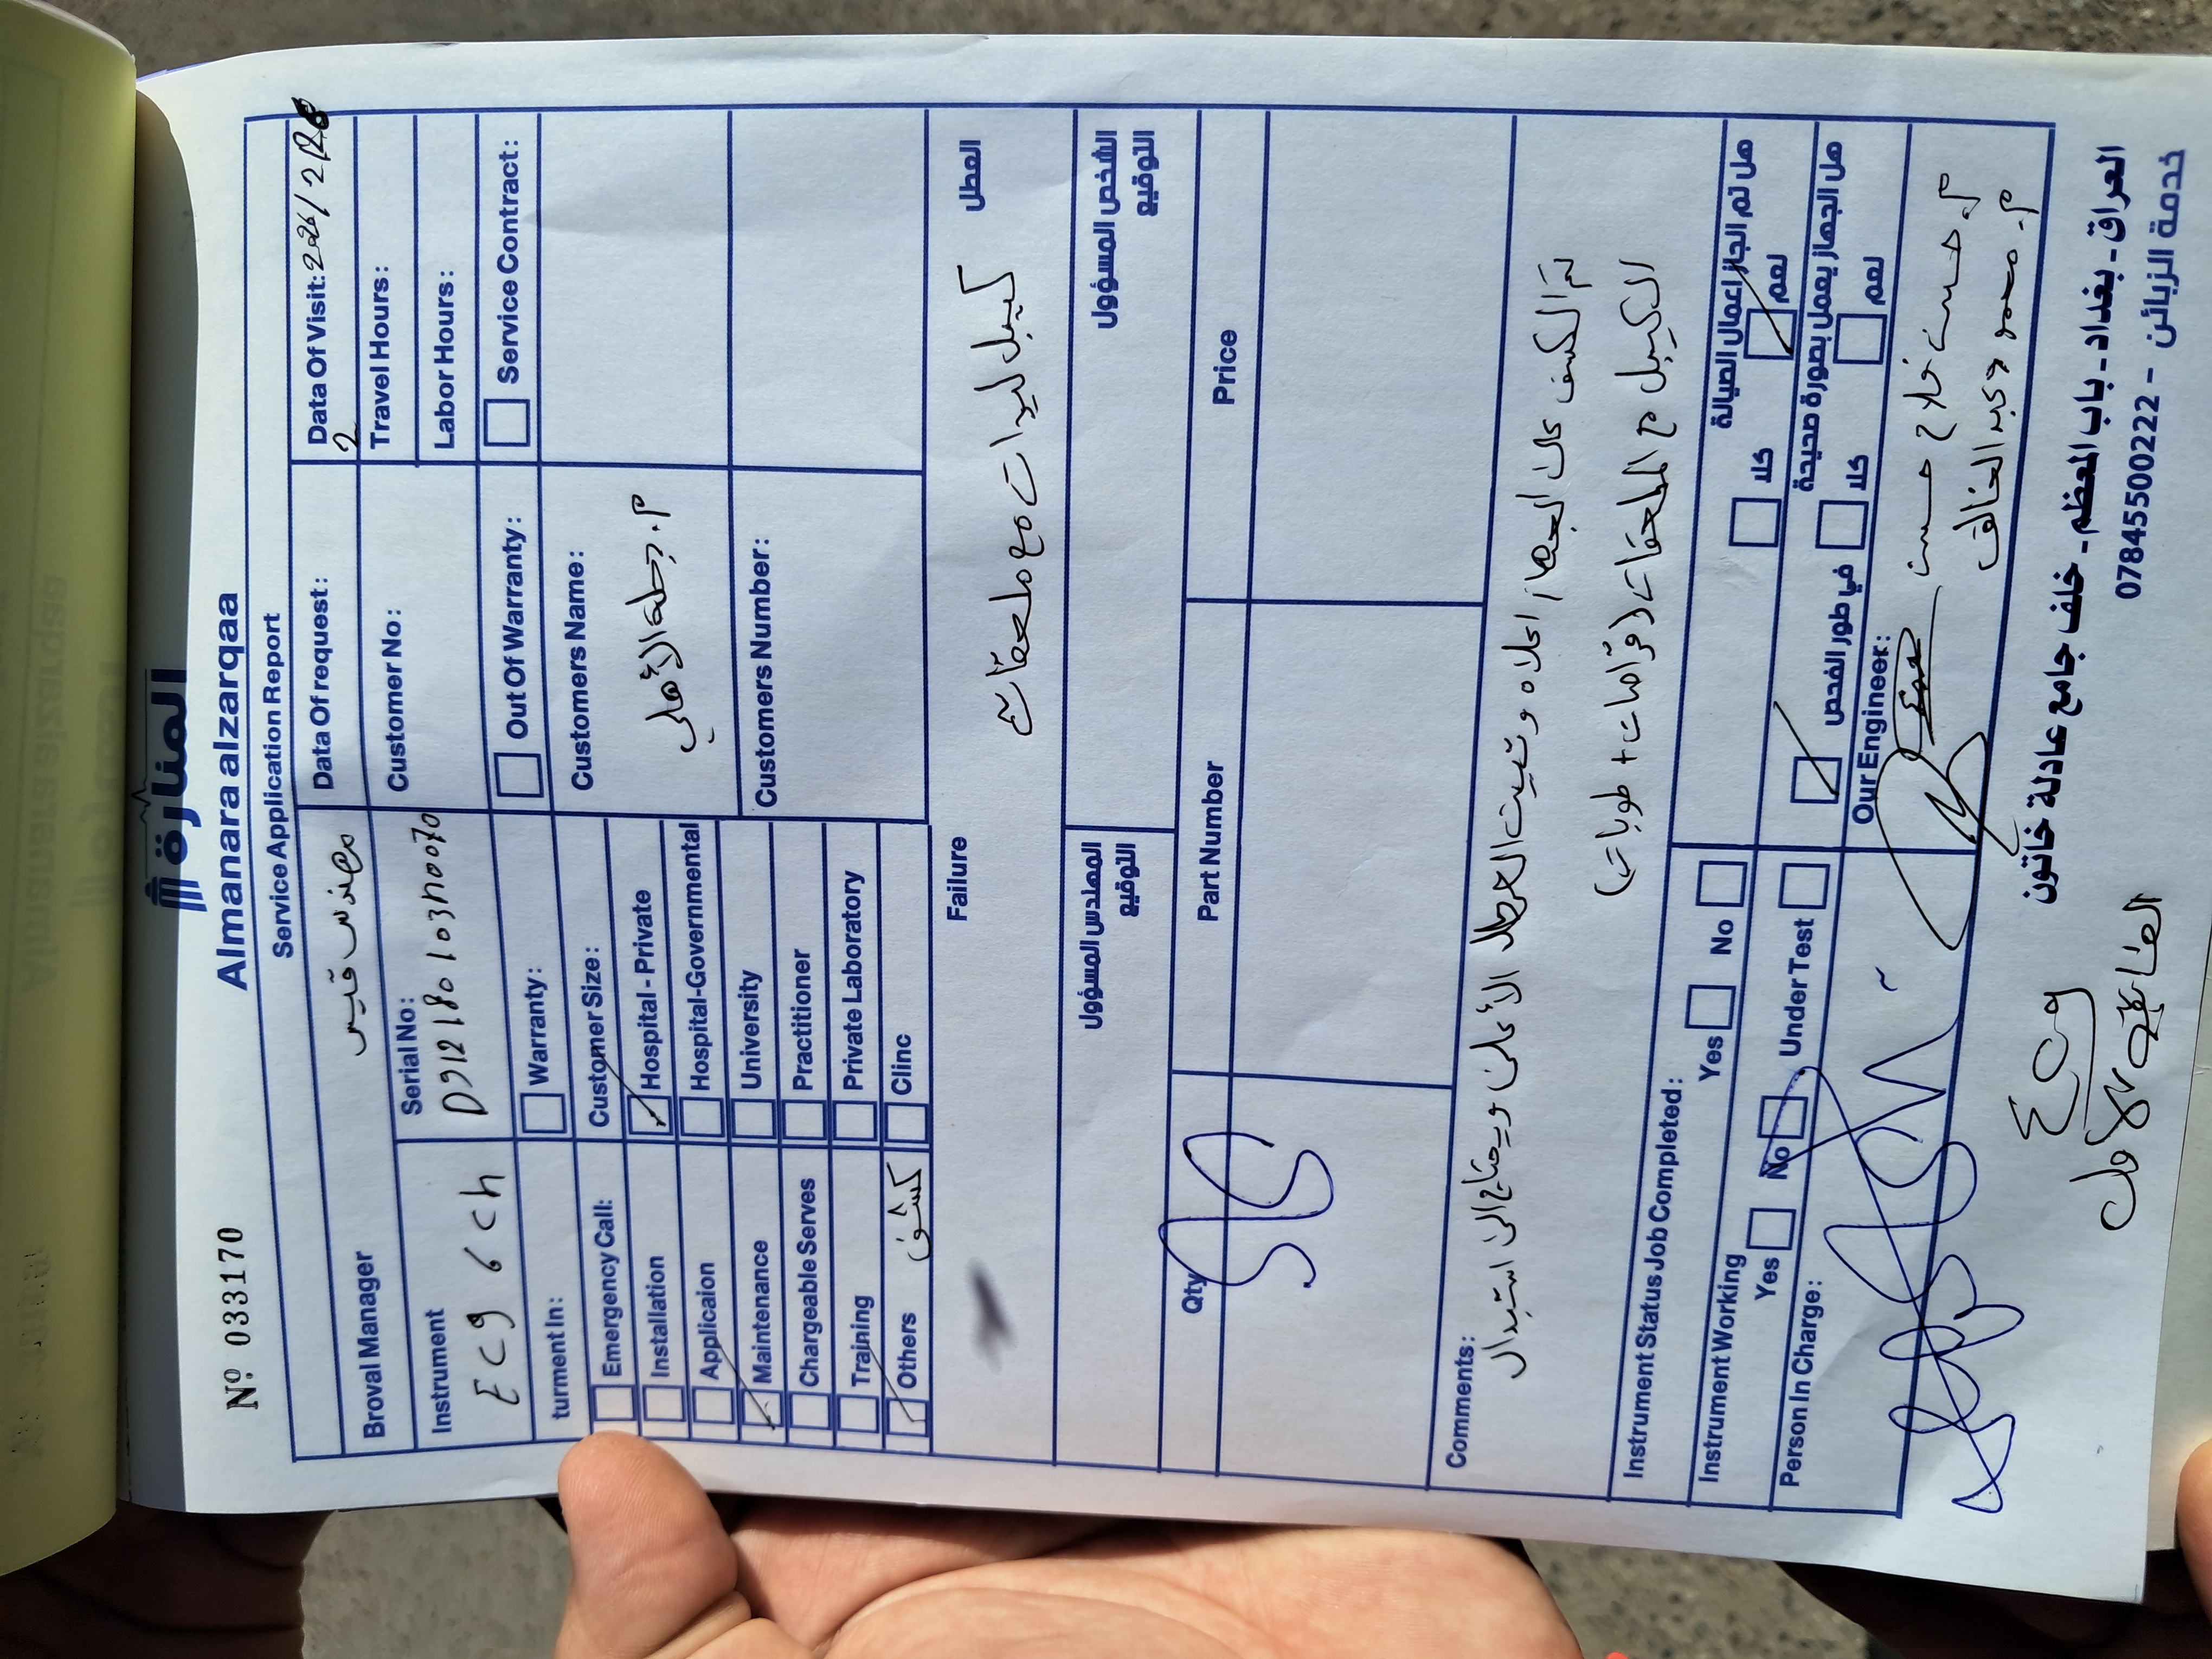 المنارة
Almanara alzarqaa
Nº 033170
Service Application Report
Broval Manager
مهندس قيس
Data Of request:
Data Of Visit:
Instrument
Ecg 6 ch
Serial No:
D912180103H0070
Customer No:
Travel Hours:
Labor Hours:
turment In:
Warranty:
Out Of Warranty:
Service Contract:
Emergency Call:
Installation
Applicaion
Maintenance
Chargeable Serves
Training
Others
كشف
Customer Size:
Hospital - Private
Hospital-Governmental
University
Practitioner
Private Laboratory
Clinc
Customers Name:
م. دجلة الأهلي
Customers Number:
Failure
العطل
كيبل ليدات مع ملحقات
المهندس المسؤول
التوقيع
الشخص المسؤول
التوقيع
Qty
Part Number
Price
Comments:
تم الكشف على الجهاز اعلاه وتثبيت العطل الأعلى ويحتاج الى استبدال
الكيبل مع الملحقات (قراصات + طوبات)
Instrument Status Job Completed:
Yes
No
كلا
هل تم انجاز اعمال الصيانة
نعم
Instrument Working
Yes
No
Under Test
في طور الفحص
كلا
هل الجهاز يعمل بصورة صحيحة
نعم
Person In Charge:
Our Engineer:
م. حسن فلاح حسن
م. محمود عبد الخالق
العراق - بغداد - باب المعظم - خلف جامع عادلة خاتون
خدمة الزبائن - 07845500222